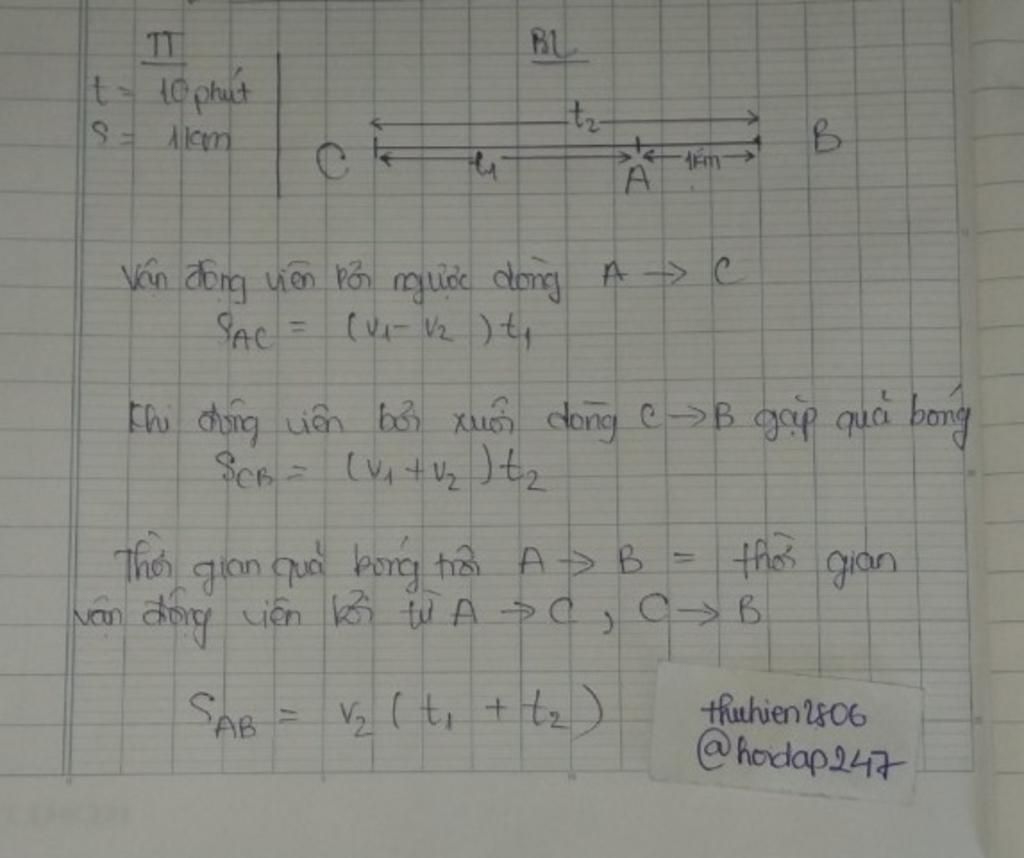 TT
BL
t = 10 phút
S = 1km
t₂
C
t₁
A
1km
B
Vận động viên bơi ngược dòng A → C
S_AC = (v₁ - v₂)t₁
Khi động viên bơi xuôi dòng C → B gặp quả bóng
S_CB = (v₁ + v₂)t₂
Thời gian quả bóng trôi A → B = thời gian
vận động viên bơi từ A → C, C → B
S_AB = v₂(t₁ + t₂)
thuhien2806
@hoidap247